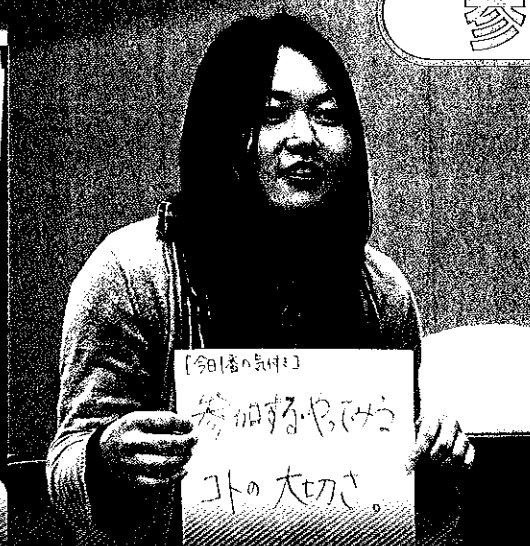 参
[今日1番の気付き]
参加する・やってみる
コトの大切さ。